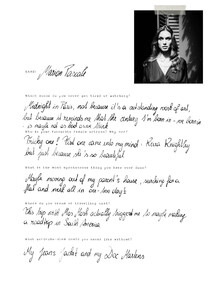 NAME: Marion Pascale
Which movie do you never get tired of watching?
Midnight in Paris, not because it's a outstanding work of art,
but because it reminds me that the century I'm born in - or borrie
is maybe not as bad as we think
Who is your favourite female actress? Why her?
Tricky one! First one came into my mind - Keira Knightley
but just because she is so beautiful
What is the most adventurous thing you have ever done?
Maybe moving out of my parent's house, searching for a
flat and work all in one-two day's
Where do you dream of travelling next?
This trip with Max Mark actually inspired me to maybe making
a roadtrip in South America
What articles would you never live without?
My Jeans Jacket and my Doc Martens